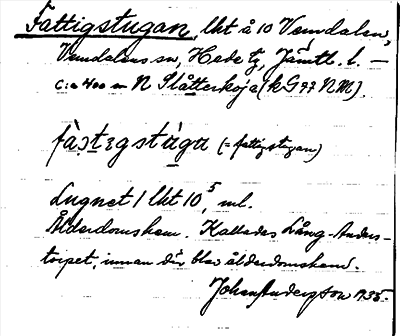 Fattigstugan, lht å 10 Vemdalen,
Vemdalens sn, Hede tg, Jämtl. l. –
c:a 400 m N Slåtterkoja (kG77NM).
(= fattigstugan)
Lugnet 1 lht 10⁵, ml.
Ålderdomshem. Kallades Lång-Anders-
torpet, innan där blev ålderdomshem.
Johan Andersson 1935.